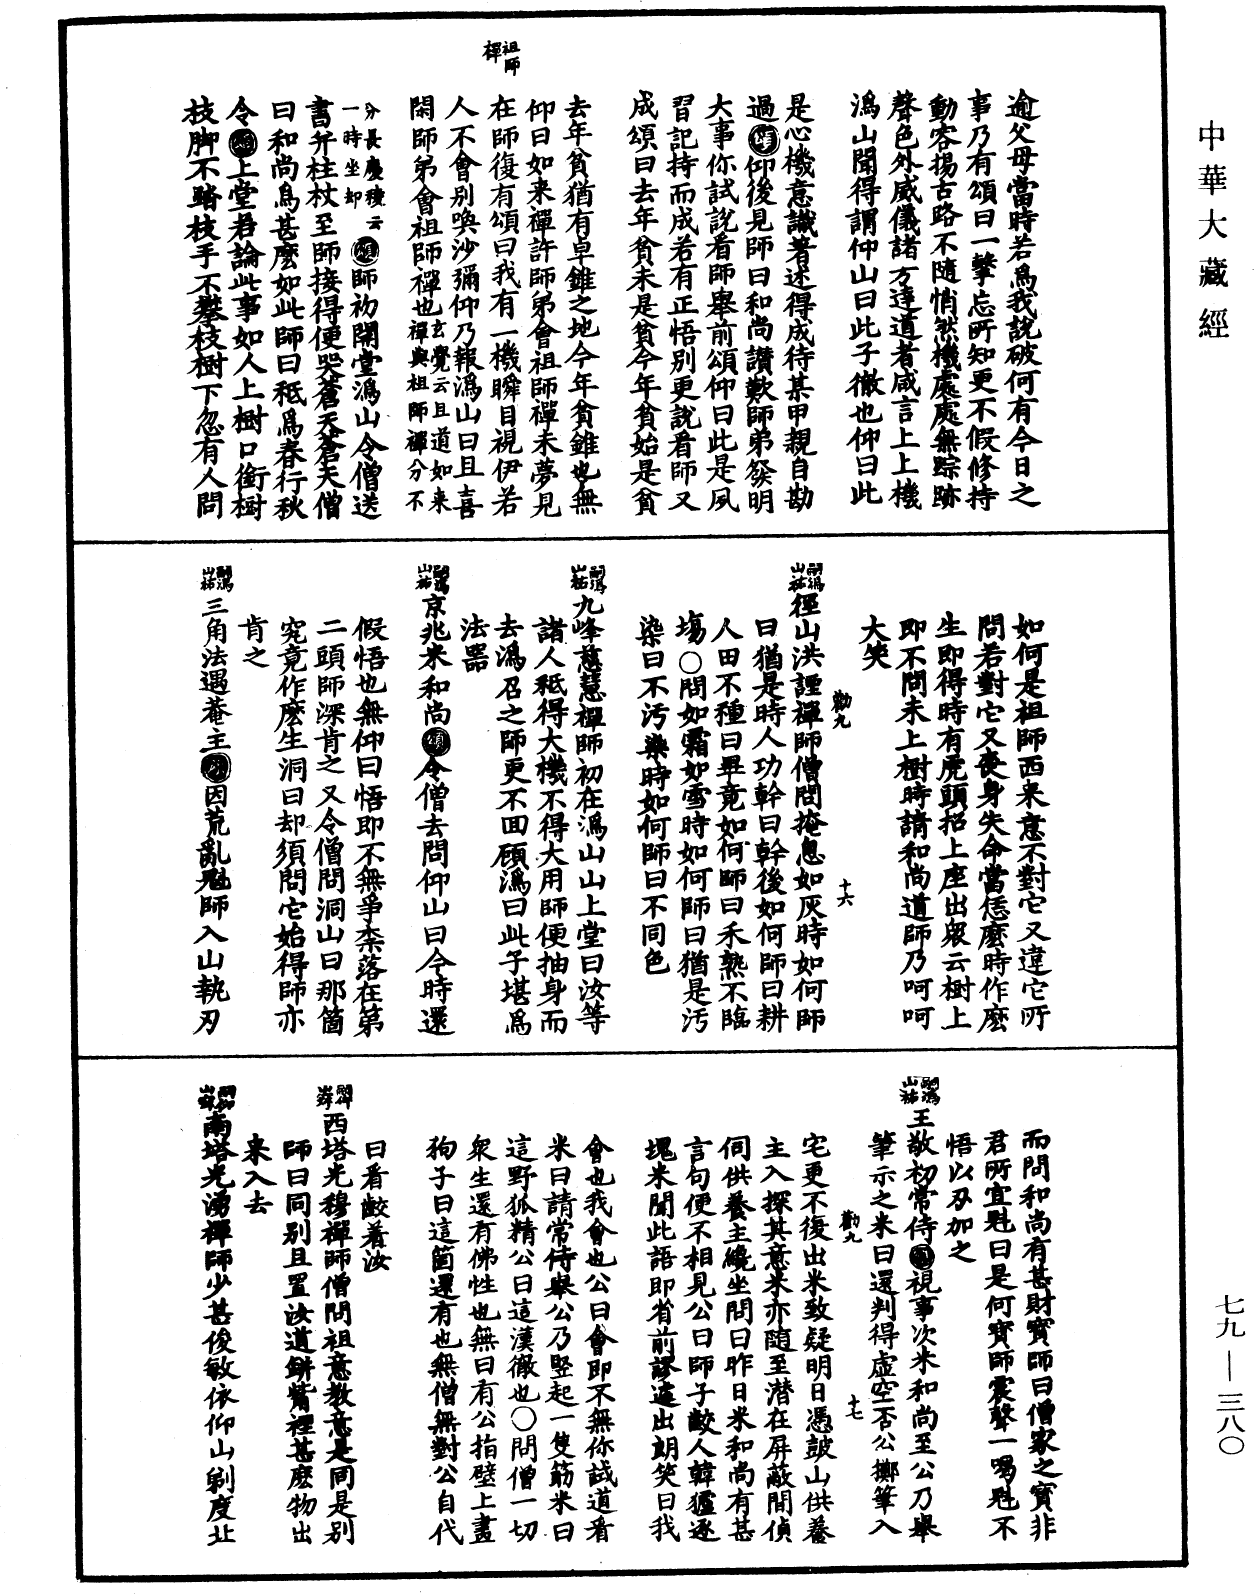 中華大藏經
七九—三八〇
逾父母當時若爲我說破何有今日之
事乃有頌曰一擊忘所知更不假修持
動容揚古路不隨悄然機處處無踪跡
聲色外威儀諸方達道者咸言上上機
溈山聞得謂仰山曰此子徹也仰曰此
是心機意識著述得成待某甲親自勘
過仰後見師曰和尚讚歎師弟發明
大事你試說看師舉前頌仰曰此是夙
習記持而成若有正悟別更說看師又
成頌曰去年貧未是貧今年貧始是貧
去年貧猶有卓錐之地今年貧錐也無
祖師禪
仰曰如来禪許師弟會祖師禪未夢見
在師復有頌曰我有一機瞬目視伊若
人不會別喚沙彌仰乃報溈山曰且喜
閑師弟會祖師禪也玄覺云且道如来禪與祖師禪分不
分長慶稜云一時坐却頌師初開堂溈山令僧送
書并柱杖至師接得便哭蒼天蒼天僧
曰和尚爲甚麽如此師曰秖爲春行秋
令頌上堂若論此事如人上樹口銜樹
枝脚不踏枝手不攀枝樹下忽有人問
如何是祖師西来意不對它又違它所
問若對它又喪身失命當恁麽時作麽
生即得時有虎頭招上座出衆云樹上
即不問未上樹時請和尚道師乃呵呵
大笑
嗣溈山祐徑山洪諲禪師僧問掩息如灰時如何師
曰猶是時人功幹曰幹後如何師曰耕
人田不種曰畢竟如何師曰禾熟不臨
場〇問如霜如雪時如何師曰猶是污
染曰不污染時如何師曰不同色
勸九
十六
嗣溈山祐九峰慈慧禪師初在溈山山上堂曰汝等
諸人秖得大機不得大用師便抽身而
去溈召之師更不回顧溈曰此子堪爲
法器
嗣溈山祐京兆米和尚頌令僧去問仰山曰今時還
假悟也無仰曰悟即不無爭柰落在第
二頭師深肯之又令僧問洞山曰那箇
究竟作麽生洞曰却須問它始得師亦
肯之
嗣溈山祐三角法遇菴主因荒亂魁師入山執刃
而問和尚有甚財寶師曰僧家之寶非
君所宜魁曰是何寶師震聲一喝魁不
悟以刃加之
嗣溈山祐王敬初常侍視事次米和尚至公乃舉
筆示之米曰還判得虚空否公擲筆入
宅更不復出米致疑明日憑皷山供養
主入探其意米亦隨至潜在屏蔽間偵
伺供養主纔坐問曰昨日米和尚有甚
言句便不相見公曰師子齩人韓獹逐
塊米聞此語即省前謬遽出朗笑曰我
會也我會也公曰會即不無你試道看
米曰請常侍舉公乃竪起一隻筯米曰
這野狐精公曰這漢徹也〇問僧一切
衆生還有佛性也無曰有公指壁上畫
狗子曰這箇還有也無僧無對公自代
曰看齩着汝
勸九
十七
西塔光穆禪師僧問祖意教意是同是別
師曰同別且置汝道缾觜裡甚麽物出
来入去
南塔光湧禪師少甚俊敏依仰山剃度北